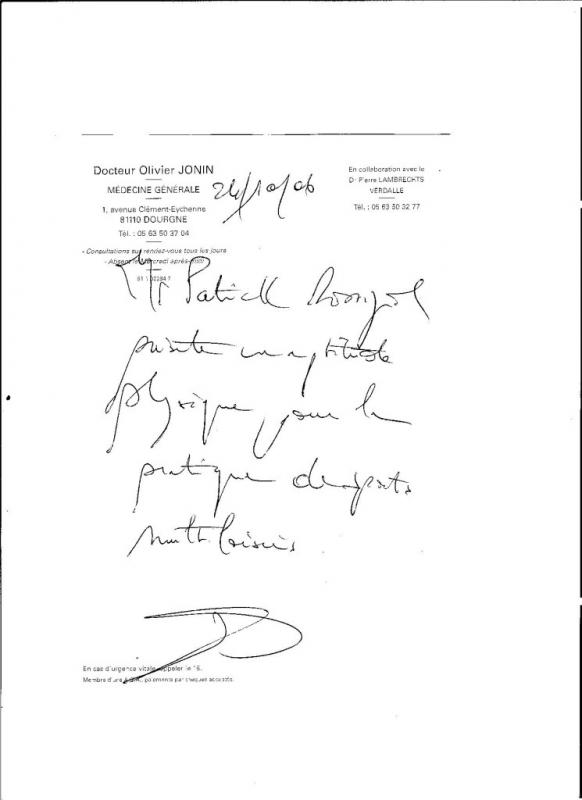 Docteur Olivier JONIN
MÉDECINE GÉNÉRALE
1, avenue Clément-Eychenne
81110 DOURGNE
Tél. : 05 63 50 37 04
- Consultations sur rendez-vous tous les jours
- Absent le mercredi après-midi
24/10/06
En collaboration avec le
Dr Pierre LAMBRECHTS
VERDALLE
Tél. : 05 63 50 32 77
Mr Patrick
présente une aptitude
physique pour la
pratique de sports
multi loisirs
En cas d'urgence vitale appeler le 15.
Membre d'une A.G.A., paiements par chèques acceptés.